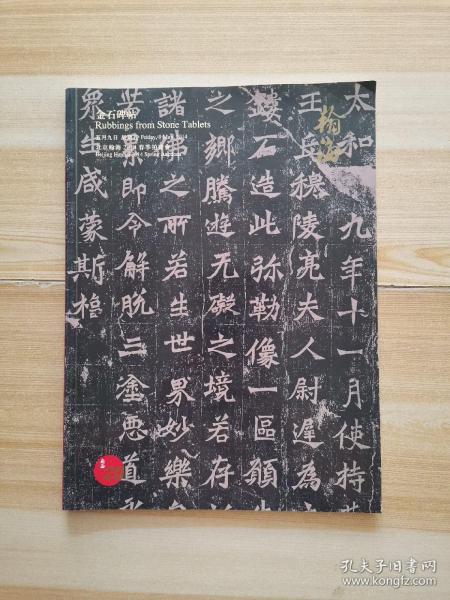 金石碑帖
Rubbings from Stone Tablets
五月九日 星期五 Friday, 9 May, 2014
北京翰海 2014 春季拍賣會
Beijing Hanhai 2014 Spring Auctions
翰海
太和 九年十一月使持
王丘穆陵亮夫人尉遲為
鏤石造此弥勒像一區願
之鄉騰遊无礙之境若存
諸 之所若生世界妙樂
苦 即令解脫三塗惡道
眾生咸蒙斯福
孔夫子旧书网
www.kongfz.com